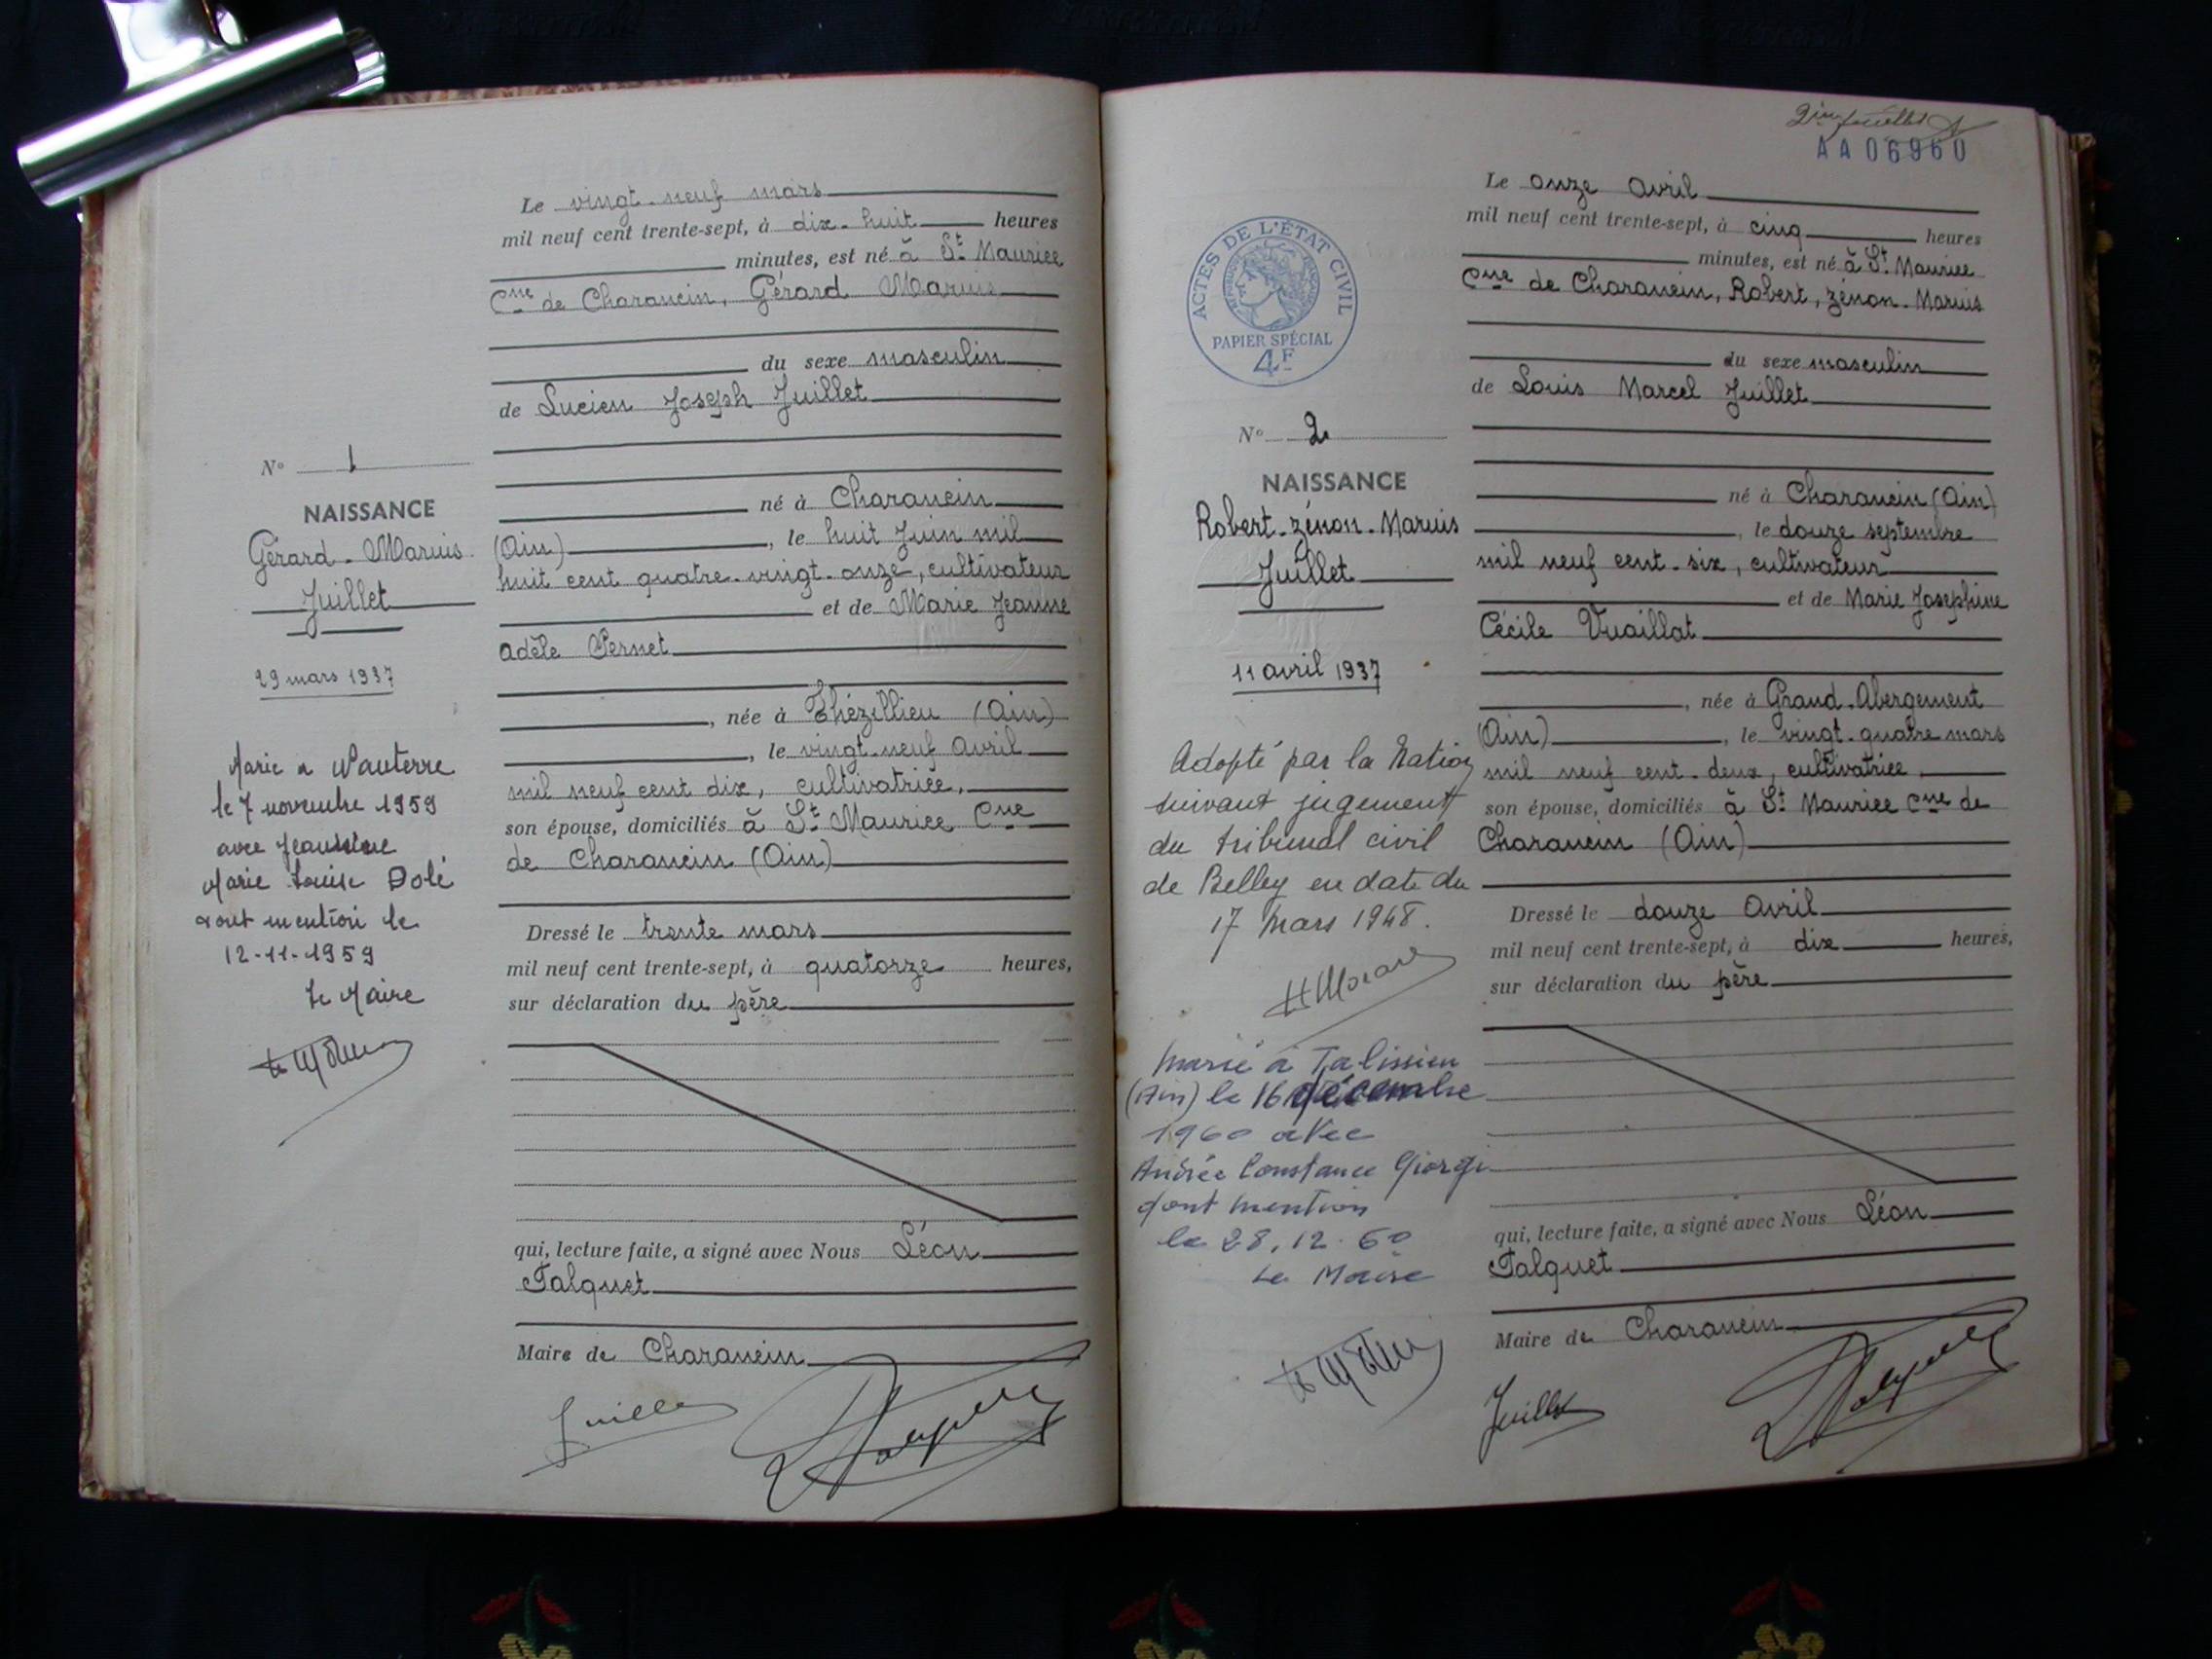 Le vingt-neuf mars
mil neuf cent trente-sept, à dix-huit heures
minutes, est né à St Maurice
Cne de Charancin, Gérard Marius
du sexe masculin
de Lucien Joseph Juillet
né à Charancin
(Ain), le huit Juin mil
huit cent quatre-vingt-onze, cultivateur
et de Marie Jeanne
Adèle Pernet
, née à Thézillieu (Ain)
, le vingt-neuf Avril
mil neuf cent dix, cultivatrice,
son épouse, domiciliés à St Maurice Cne
de Charancin (Ain)
Dressé le trente mars
mil neuf cent trente-sept, à quatorze heures,
sur déclaration du père
qui, lecture faite, a signé avec Nous Léon
Falquet
Maire de Charancin
Juillet
N° 1
NAISSANCE
Gérard-Marius
Juillet
29 mars 1937
Marié à Nanterre
le 7 novembre 1959
avec Jeannine
Marie Louise Dolé
dont mention le
12-11-1959
Le Maire
2me feuillet
AA06960
ACTES DE L'ÉTAT CIVIL
RÉPUBLIQUE FRANÇAISE
PAPIER SPÉCIAL
4F
Le onze Avril
mil neuf cent trente-sept, à cinq heures
minutes, est né à St Maurice
Cne de Charancin, Robert, Zénon-Marius
du sexe masculin
de Louis Marcel Juillet
né à Charancin (Ain)
, le douze septembre
mil neuf cent-six, cultivateur
et de Marie Joséphine
Cécile Vuaillat
, née à Grand-Abergement
(Ain), le vingt-quatre mars
mil neuf cent-deux, cultivatrice,
son épouse, domiciliés à St Maurice Cne de
Charancin (Ain)
Dressé le douze Avril
mil neuf cent trente-sept, à dix heures,
sur déclaration du père
qui, lecture faite, a signé avec Nous Léon
Falquet
Maire de Charancin
Juillet
N° 2
NAISSANCE
Robert-Zénon-Marius
Juillet
11 avril 1937
Adopté par la Nation
suivant jugement
du tribunal civil
de Belley en date du
17 Mars 1948.
Marié à Talissieu
(Ain) le 16 décembre
1960 avec
Andrée Constance Giorgi
dont mention
le 28.12.60
Le Maire